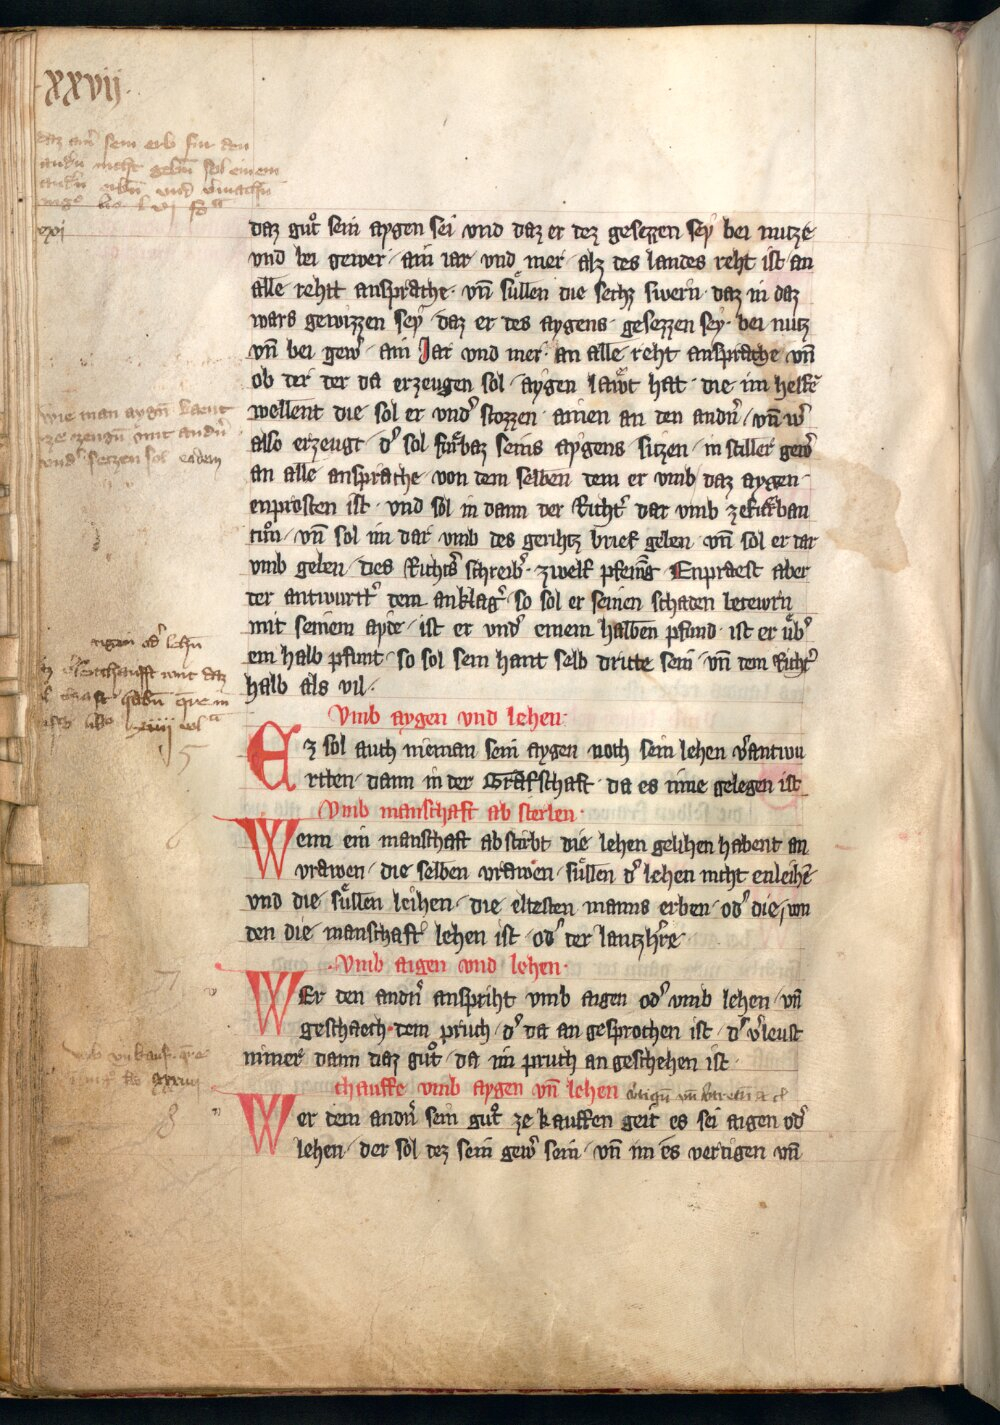 ·xxvij·
daz ain͛ sein erb fur den
andn͛ nicht gebn̄ sol einem
andn͛ erbn̄ vnd vmachn̄
exj
daz gůt sein aygen sei vnd daz er dez gesezzen seẏ bei nutze
vnd bei gewer · ain iar · vnd mer · alz des landes reht ist · an
alle rehtt ansprache · vn̄ sůllen die sechz swern · daz in daz
wars gewizzen seẏ · daz er des aygens · gesezzen sey · bei nutz
vn̄ bei gew͛ · ain Jar vnd mer · an alle reht ansprache vn̄
ob der der da erzeugen sol · aygen lawt hat · die im helfē
wellent die sol er vnd͛ stozzen · ainen an den andn͛ · vn̄ w͛
also erzeugt · d͛ sol fůrbaz seins aygens · sitzen · in stiller gew͛
an alle ansprache · von dem selben dem er vmb daz aygen ·
enprosten ist · vnd sol in dann der Richt͛ dar vmb ze fůrban
tůn · vn̄ sol im dar vmb des gerihtz brief geben · vn̄ sol er dar
vmb geben · dies Richt͛s schreib͛ · zwelf pfenīg · Enpraest aber
der antwurtt͛ dem anklag͛ · so sol er seinen schaden betewrn
mit seinem ayde · ist er vnd͛ einem halben pfund · ist er ůb͛
em halb pfunt · so sol sein hant selb dritte sein · vn̄ dem Richt͛
halb als vil ·
aigen od͛ lehn̄
Vmb aygen vnd lehen·
Ez sol auch nieman sein aygen noch sein lehen v͛antwu
rtten · dann in der Grafschaft · da es inne gelegen ist
5
Vmb manschaft ab sterben·
Wenn ein manschaft abstirbt die lehen gelihen habent an
vrawen · die selben vrawen · sůllen d͛ lehen nicht enleihē
vnd die sůllen leihen · die eltesten manns erben · od͛ die von
den die manschaft lehen ist · od͛ der lantzh͛re
6
·Vmb aigen vnd lehen·
WEr den andn͛ anspriht vmb aigen od͛ vmb lehen · vn̄
geschaech · dem pruch · d͛ da an gesprochen ist · d͛ v͛leust
nimer dann daz gůt · da im pruch an geschehen ist ·
7
chauffe vmb aygen vn̄ lehen
Wer dem andn͛ sein gůt ze kauffen geit es sei aigen od͛
lehen · der sol dez sein gew͛ sein · vn̄ im es vertigen vn̄
8
wie man aygn̄ laeut
ze zeugn̄ mit andn͛
vnd͛ setzen sol eodem